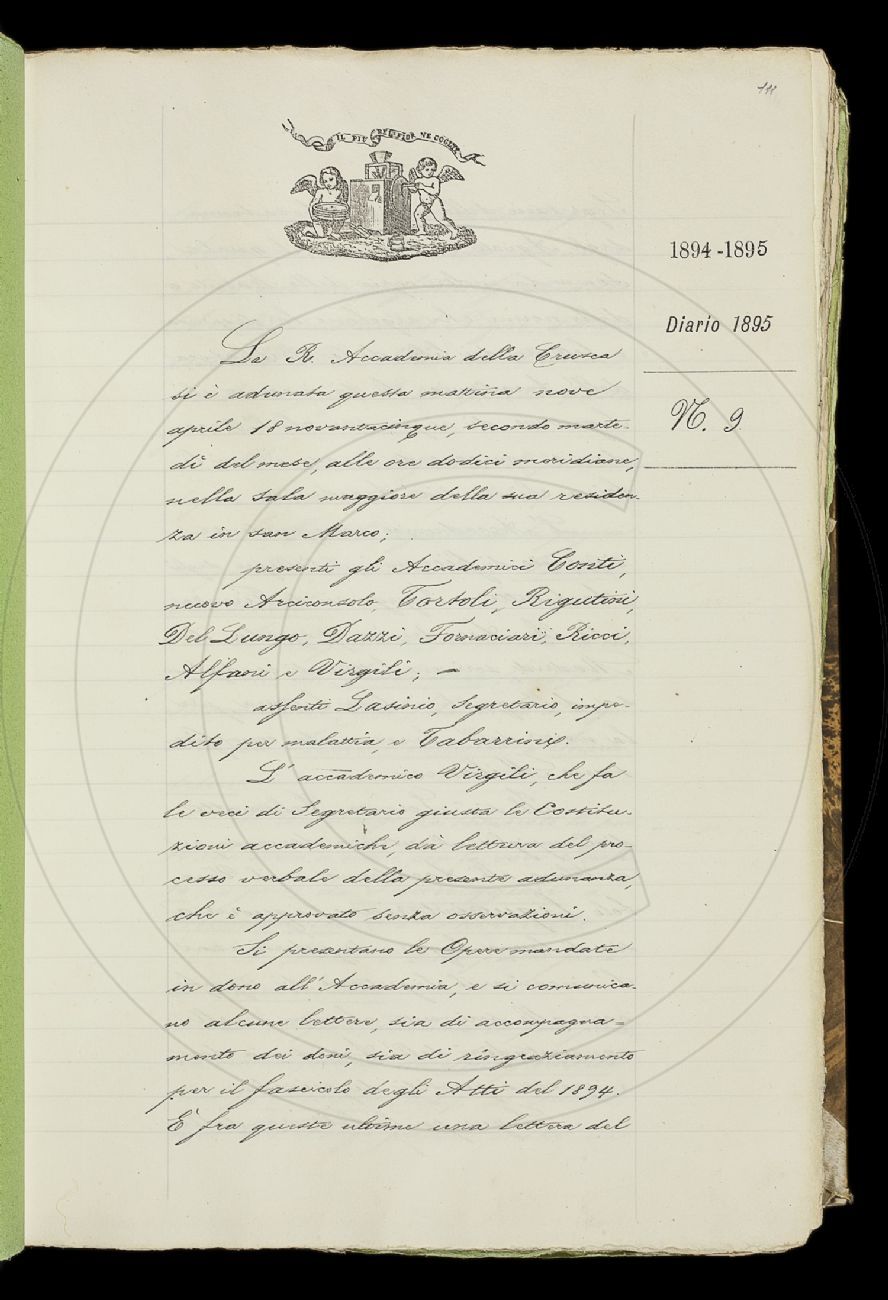 111
IL PIÙ BEL FIOR NE COGLIE
1894-1895
Diario 1895
N. 9
La R. Accademia della Crusca
si è adunata questa mattina nove
aprile 18 novantacinque, secondo marte-
dì del mese, alle ore dodici meridiane,
nella Sala maggiore della sua residen-
za in San Marco;
presenti gli Accademici Conti,
nuovo Arciconsolo, Tortoli, Rigutini,
Del Lungo, Dazzi, Fornaciari, Ricci,
Alfani e Virgili; —
assenti Lasinio, Segretario, impe-
dito per malattia, e Tabarrini.
L'accademico Virgili, che fa
le veci di Segretario giusta le Costitu-
zioni accademiche, dà lettura del pro-
cesso verbale della presente adunanza,
che è approvato senza osservazioni.
Si presentano le Opere mandate
in dono all'Accademia, e si comunica-
no alcune lettere, sia di accompagna=
mento dei doni, sia di ringraziamento
per il fascicolo degli Atti del 1894.
E' fra queste ultime una lettera del